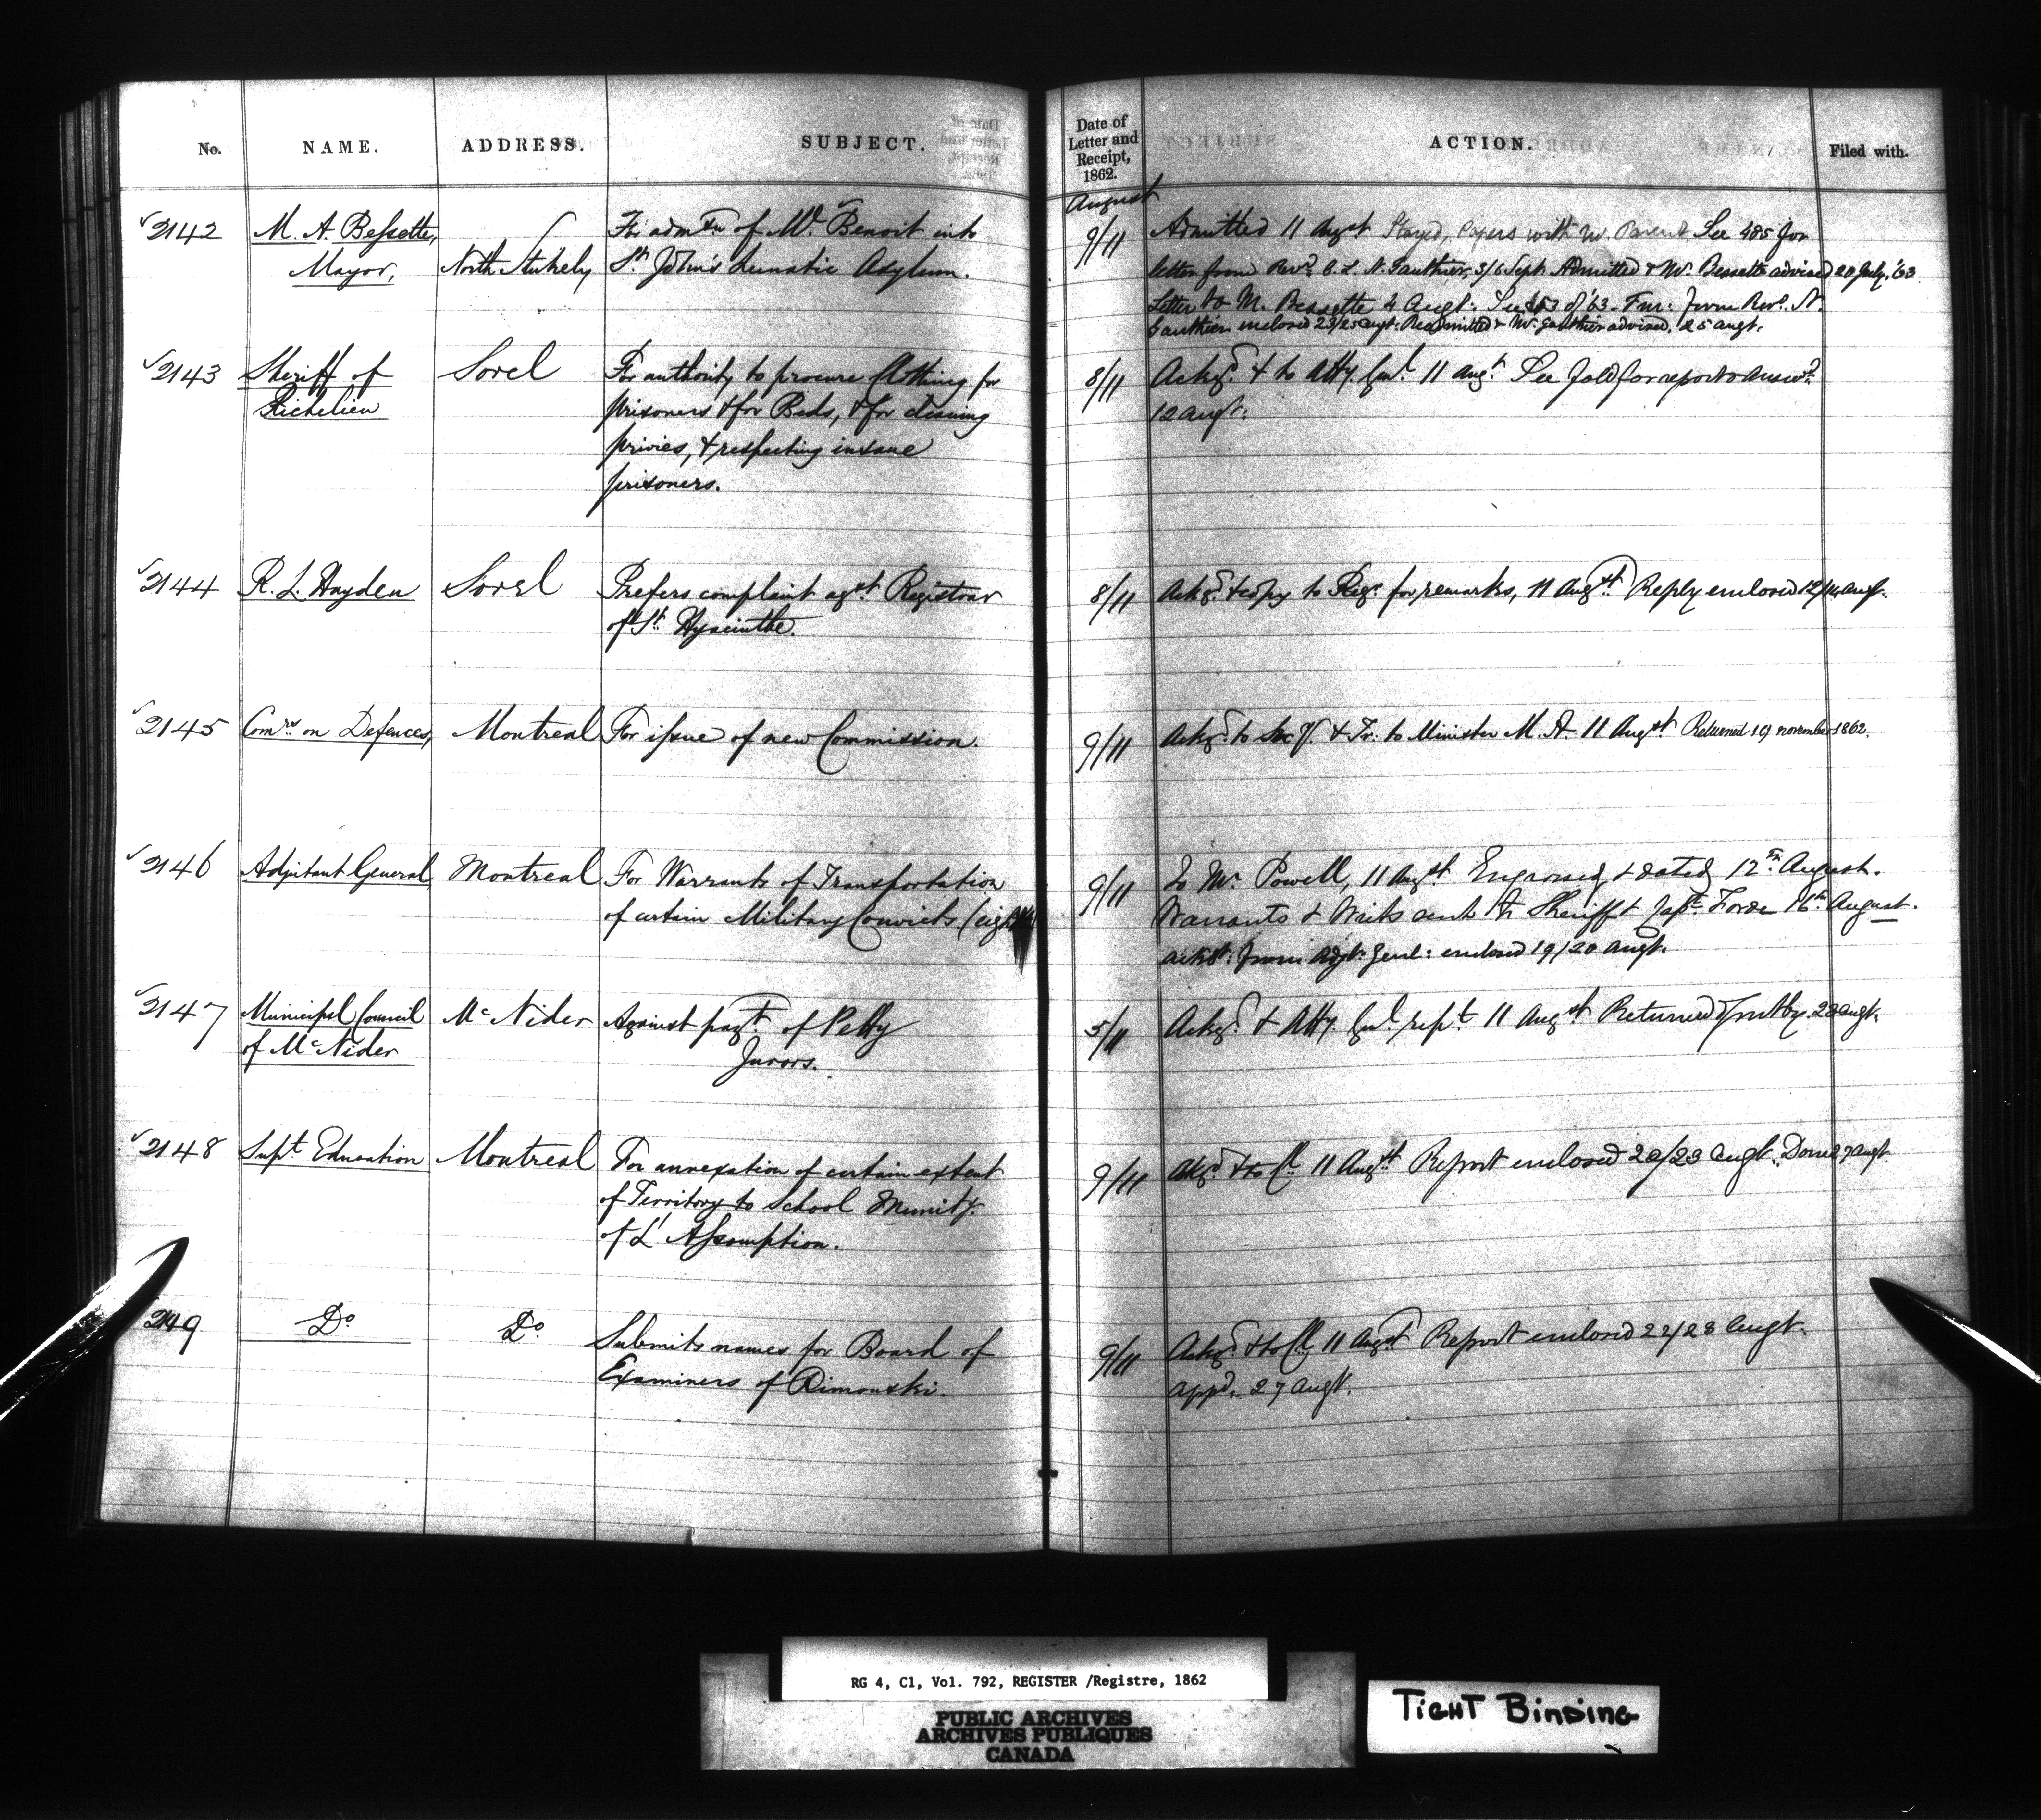 No. NAME. ADDRESS. SUBJECT. Date of Letter and Receipt, 1862. ACTION. Filed with.
August
2142 M. A. Bessette, Mayor, North Stukely
For admtn of Mr. Benoit into
St. John's Lunatic Asylum.
9/11 Admitted 11 Augst Stayed, Papers with W. Parent See 485 for
letter from Revd. C. L. N. Gauthier, 3/6 Sept. Admitted & Mr. Bessette advised 20 July. '63
Letter to M. Bessette 4 Augt. of '63. Fur: from Revd. N.
Gauthier enclosed 23/25 Augt. Readmitted & Mr. Gauthier advised. 25 augt.
2143 Sheriff of Richelieu Sorel
For authority to procure Clothing for
prisoners & for Beds, & for cleaning
privies, & respecting insane
prisoners.
8/11 Ackgd. & to Atty. Genl. 11 Augt. See fold for report & answd.
12 augt.
2144 R. L. Hayden Sorel
Prefers complaint agst. Registrar
of St. Hyacinthe.
8/11 Ackgd. & copy to Regr. for remarks, 11 Augst. Reply enclosed 12/14 augt.
2145 Comrs. on Defences, Montreal
For issue of new Commission.
9/11 Ackgd. to Secy. & Tr: to Minister M. A. 11 Augst Returned 19 november 1862.
2146 Adjutant General Montreal
For Warrants of Transportation
of certain Military Convicts
9/11 To Mr. Powell, 11 Augst. Engrossed & dated 12th. August.
Warrants & Writs sent to Sheriff & Capt. Forde 16th. August.
ackt: from Adjt: Genl: enclosed 19/20 augt.
2147 Municipal Council of McNider McNider
Against payt. of Petty
Jurors.
5/11 Ackgd. & Atty. Genl. rept. 11 Augst. Returned 22 augt.
2148 Supt. Education Montreal
For annexation of certain extent
of Territory to School Munity.
of L'Assomption.
9/11 Ackgd. & to Cl. 11 Augst. Report enclosed 22/23 augt. Done 27 augt.
2149 Do Do.
Submits names for Board of
Examiners of Rimouski.
9/11 Ackgd. & to Cl. 11 Augst. Report enclosed 22/23 augt.
appd. 27 augt.
RG 4, C1, Vol. 792, REGISTER /Registre, 1862
PUBLIC ARCHIVES
ARCHIVES PUBLIQUES
CANADA
TIGHT BINDING